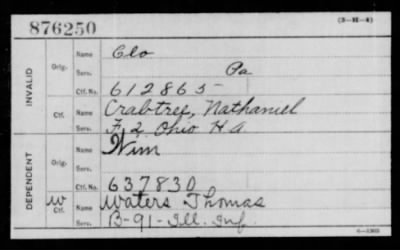 876250
(3-M-4)
INVALID
Orig.
Name Clo
Serv. Pa
Ctf. No. 612865
Ctf.
Name Crabtree, Nathaniel
Serv. F, 2, Ohio H A
DEPENDENT
Orig.
Name Wim
Serv.
Ctf. No. 637830
W
Ctf.
Name Waters Thomas
Serv. B-91-Ill. Inf.